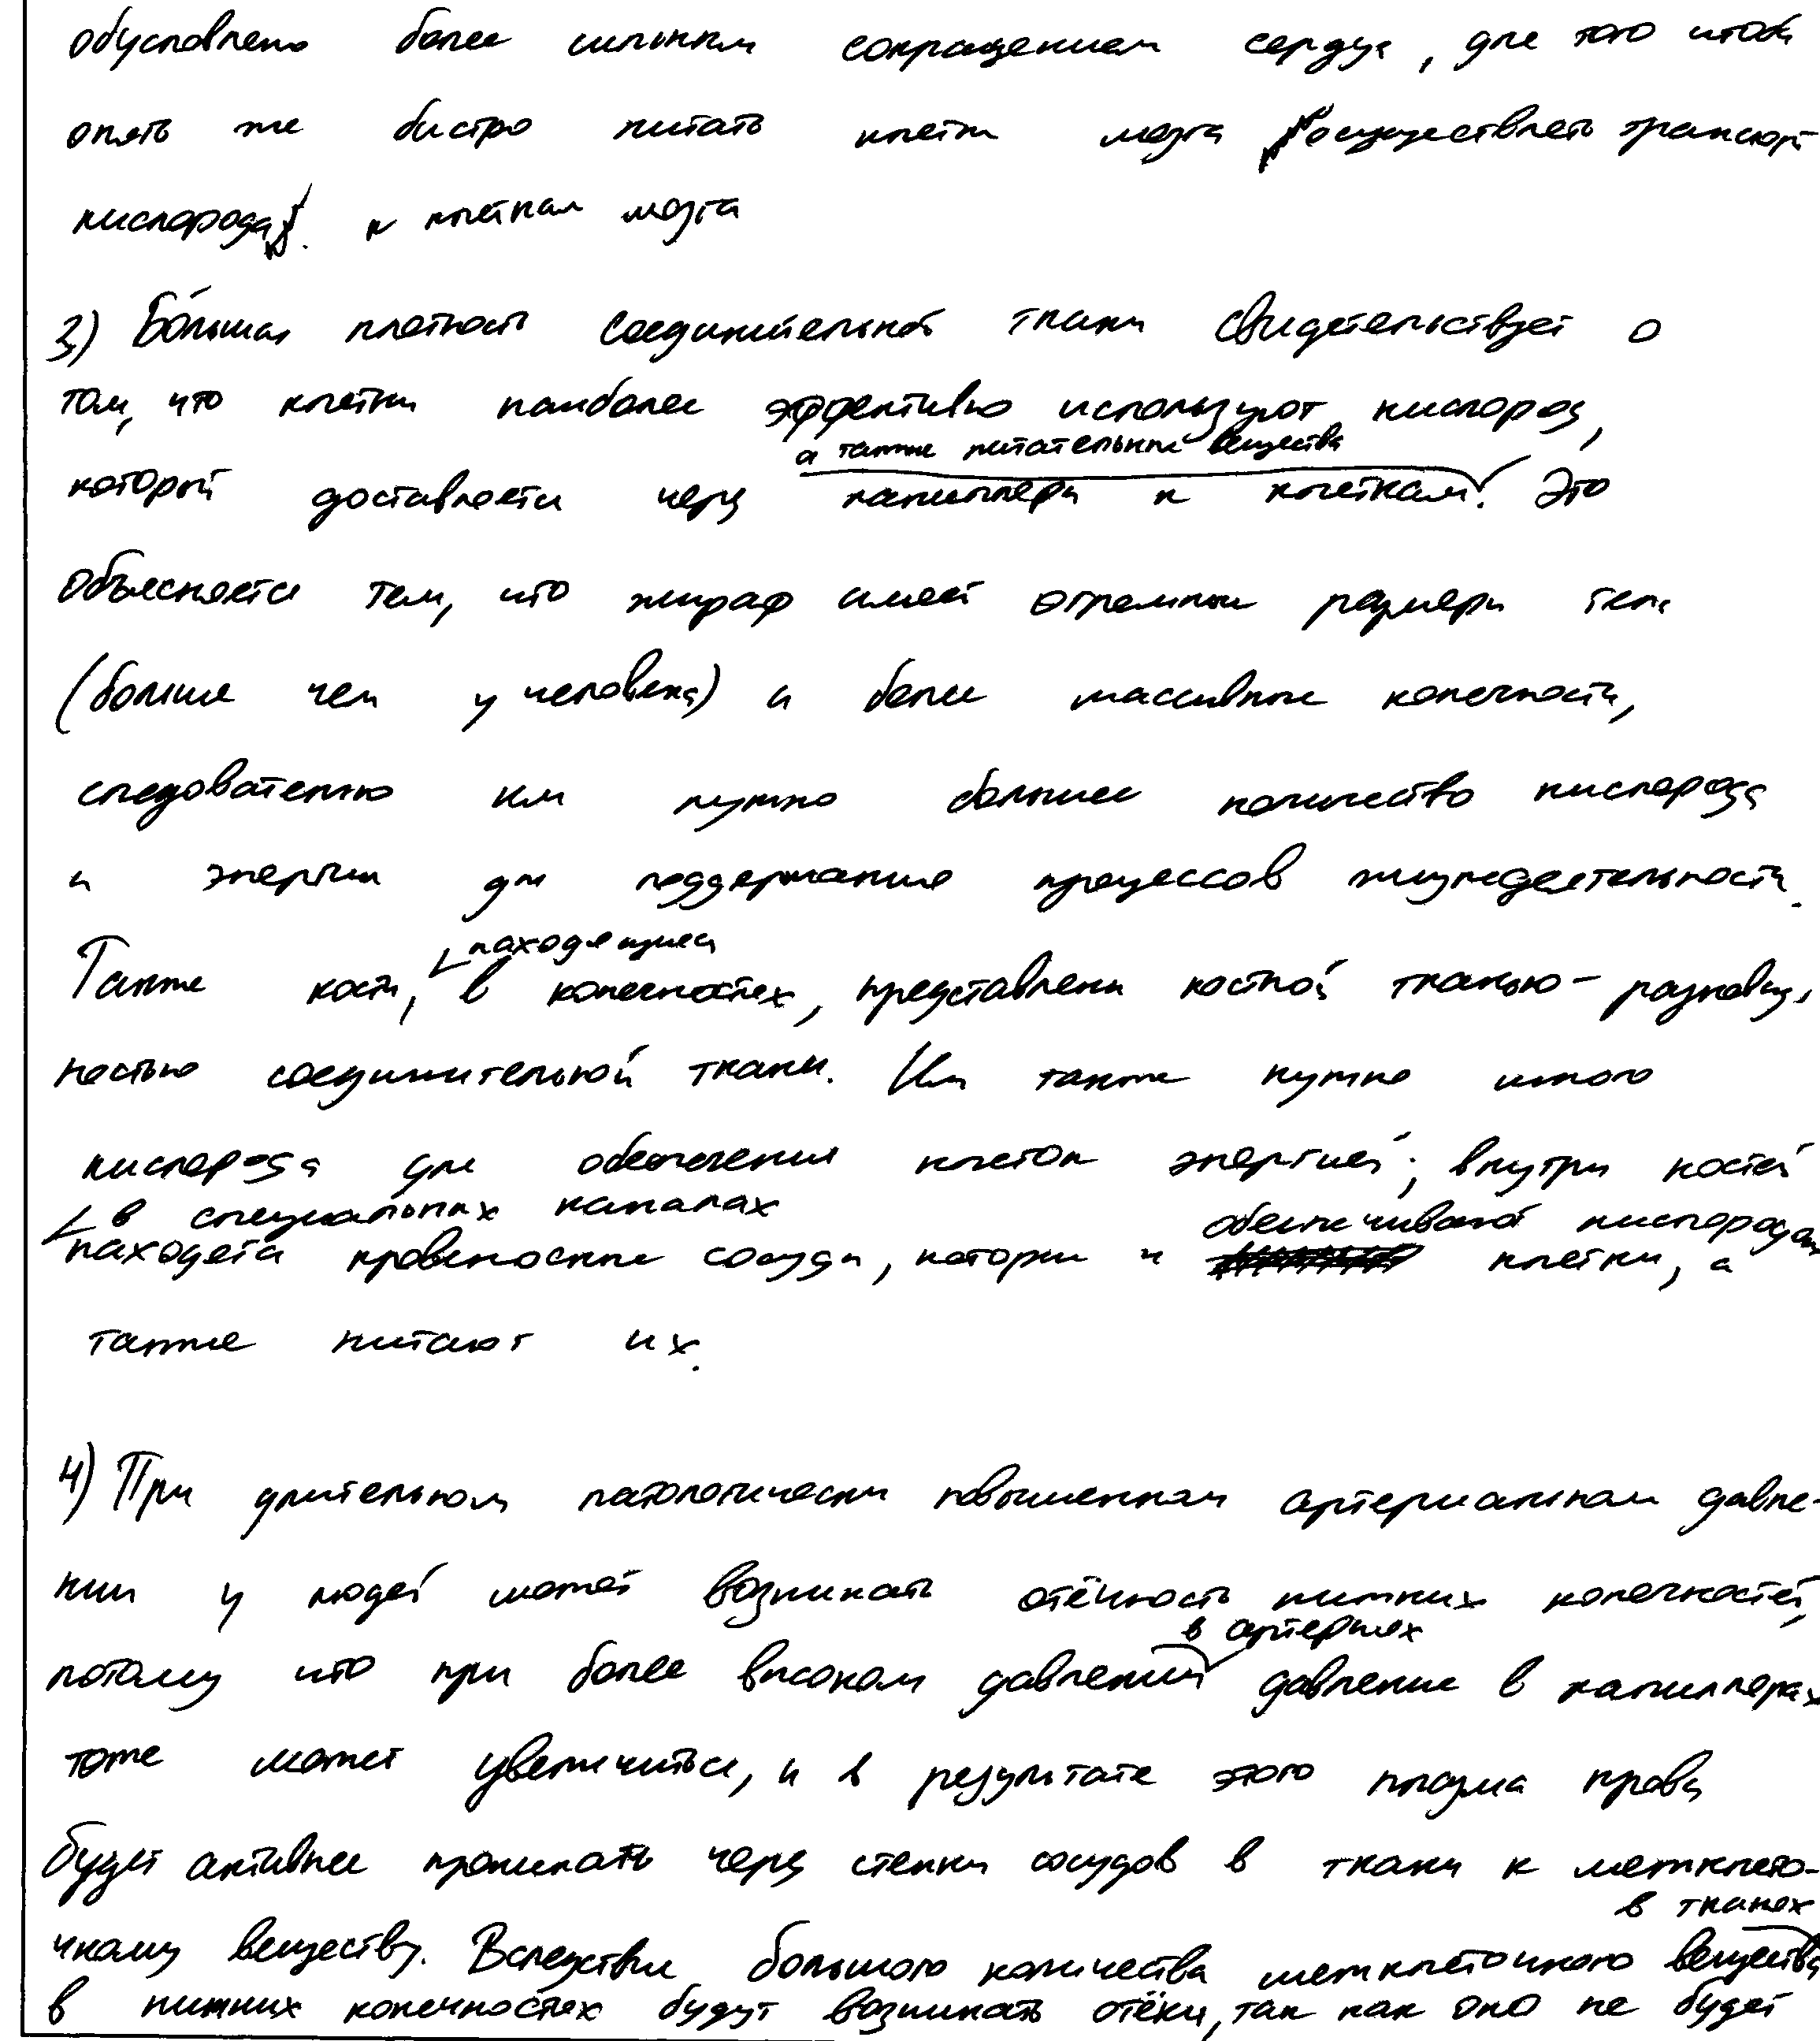 обусловлено более сильным сокращением сердца, для того чтобы
опять же быстро питать клетки мозга осуществлять транспорт
кислорода к клеткам мозга
3) Бóльшая плотность соединительной ткани свидетельствует о
том, что клетки наиболее эффективно используют кислород,
а также питательные вещества
который доставляется через капилляры к клеткам. Это
объясняется тем, что жираф имеет огромные размеры тела
(больше чем у человека) и более массивные конечности,
следовательно им нужно большее количество кислорода
и энергии для поддержание процессов жизнедеятельности.
находящиеся
Также кости, в конечностях, представлены костной тканью - разновид,
ностью соединительной ткани. Им также нужно много
кислорода для обеспечения клеток энергией; внутри костей
в специальных каналах обеспечивают кислородом
находятся кровеносные сосуды, которые и клетки, а
также питают их.
4) При длительном патологически повышенном артериальном давле-
нии у людей может возникать отёчность нижних конечностей,
в артериях
потому что при более высоком давлении давление в капиллярах
тоже может увеличиться, и в результате этого плазма крови
будет активнее проникать через стенки сосудов в ткани к межклето-
в тканях
чному веществу. Вследствие большого количества межклеточного вещества
в нижних конечностях будут возникать отёки, так как оно не будет